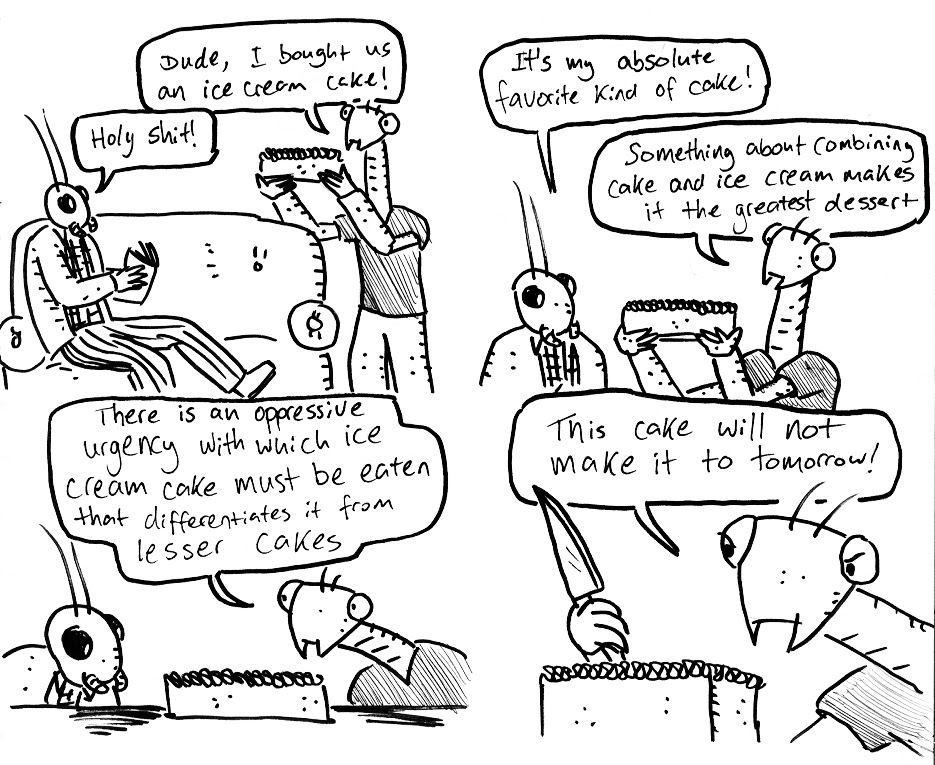 Dude, I bought us
an ice cream cake!
Holy shit!
It's my absolute
favorite kind of cake!
Something about combining
cake and ice cream makes
it the greatest dessert
There is an oppressive
urgency with which ice
cream cake must be eaten
that differentiates it from
lesser cakes
This cake will not
make it to tomorrow!